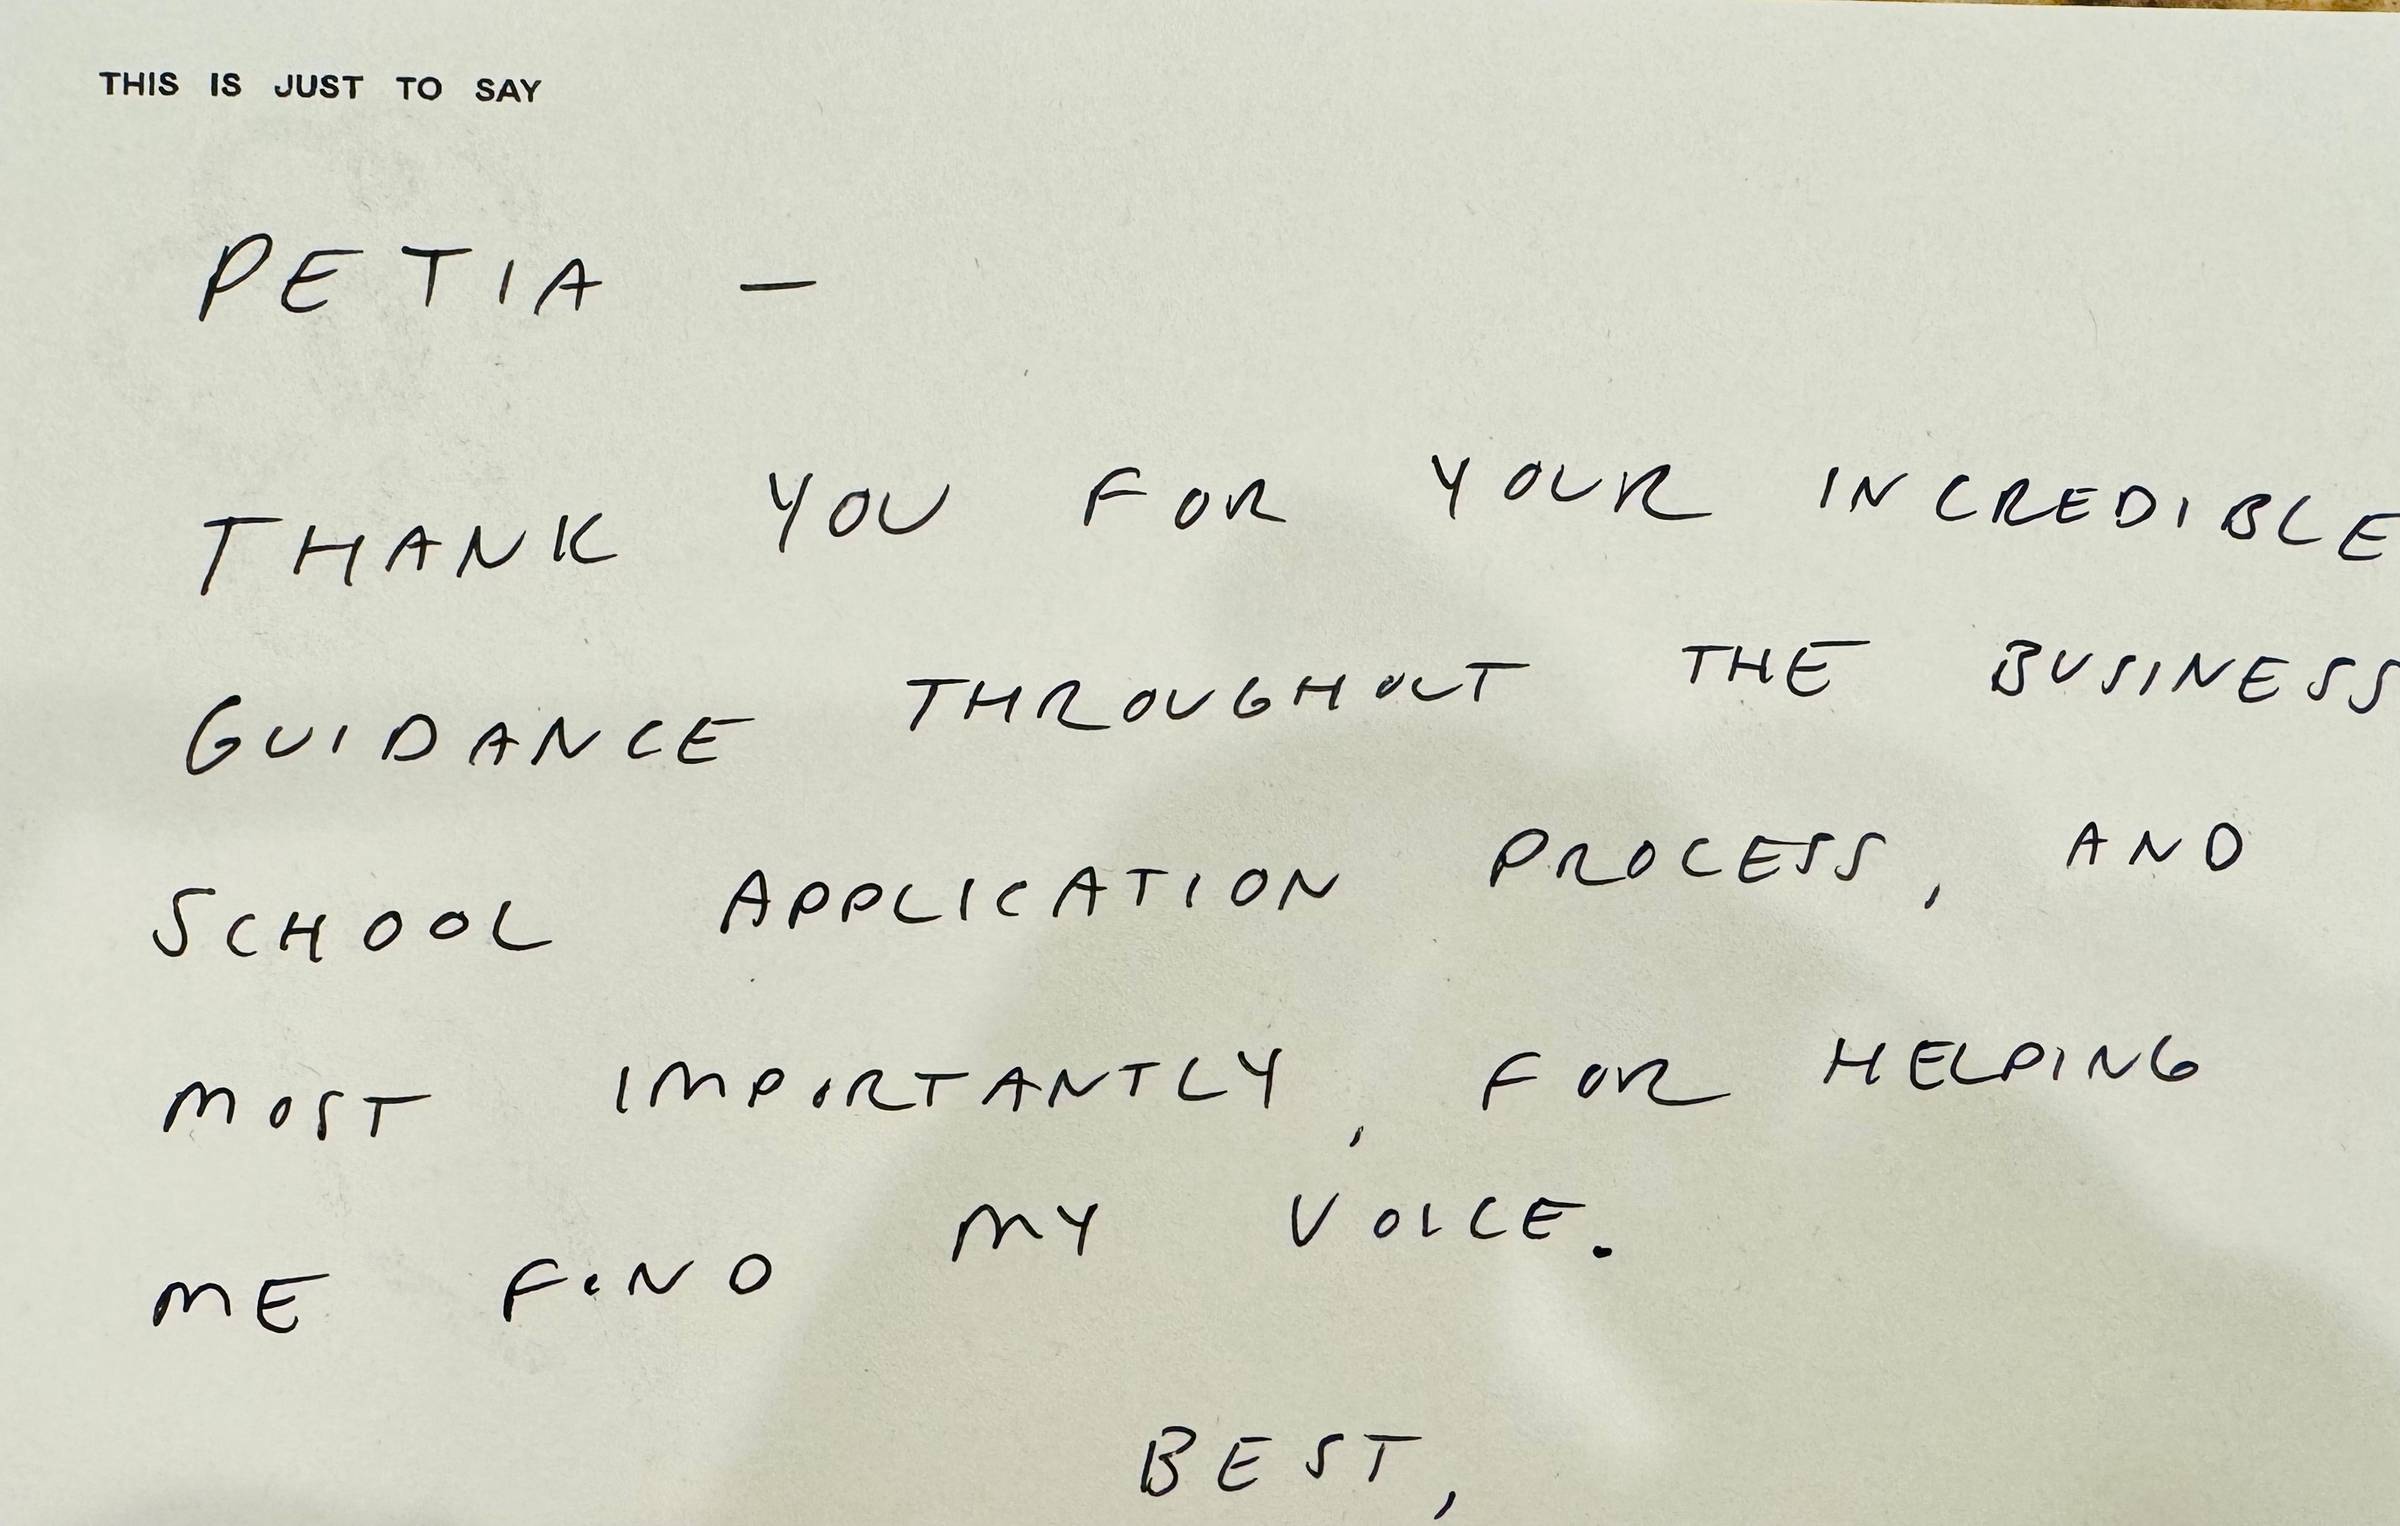 THIS IS JUST TO SAY
PETIA –
THANK YOU FOR YOUR INCREDIBLE
GUIDANCE THROUGHOUT THE BUSINESS
SCHOOL APPLICATION PROCESS, AND
MOST IMPORTANTLY, FOR HELPING
ME FIND MY VOICE.
BEST,